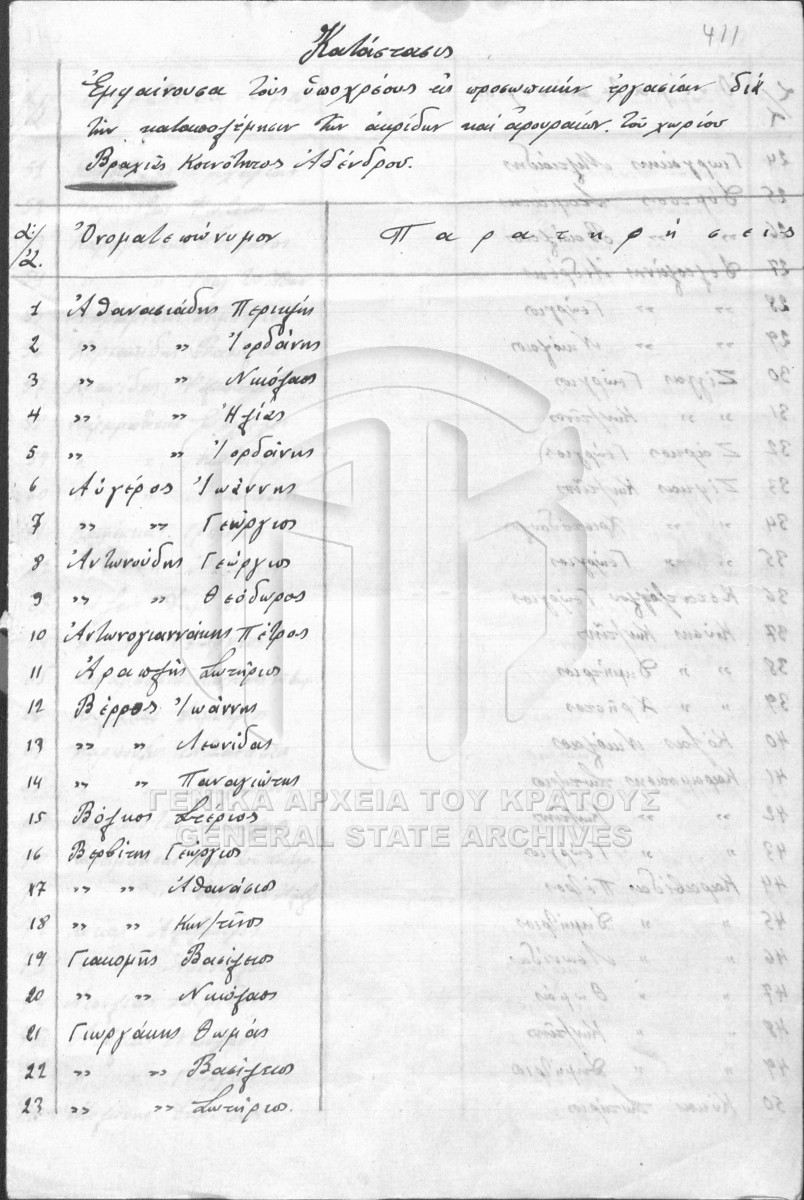 411
Κατάστασις
Ἐμφαίνουσα τοὺς ὑποχρέους εἰς προσωπικὴν ἐργασίαν διὰ
τὴν καταπολέμησιν τῶν ἀκρίδων καὶ ἀρουραίων. τοῦ χωρίου
Βραχιᾶς Κοινότητος Ἀδένδρου.
α/α. Ὀνοματεπώνυμον Παρατηρήσεις
1 Ἀθανασιάδης Περικλῆς
2 " " Ἰορδάνης
3 " " Νικόλαος
4 " " Ἠλίας
5 " " Ἰορδάνης
6 Αὐγέρος Ἰωάννης
7 " " Γεώργιος
8 Ἀντωνούδης Γεώργιος
9 " " Θεόδωρος
10 Ἀντωνογιαννάκης Πέτρος
11 Ἀραπτζῆς Σωτήριος
12 Βέρρος Ἰωάννης
13 " " Λεωνίδας
14 " " Παναγιώτης
15 Βόλκος Στέριος
16 Βερβίτης Γεώργιος
17 " " Ἀθανάσιος
18 " " Κων/τῖνος
19 Γιακομῆς Βασίλειος
20 " " Νικόλαος
21 Γιωργάκης Θωμάς
22 " " Βασίλειος
23 " " Σωτήριος.
ΓΕΝΙΚΑ ΑΡΧΕΙΑ ΤΟΥ ΚΡΑΤΟΥΣ
GENERAL STATE ARCHIVES